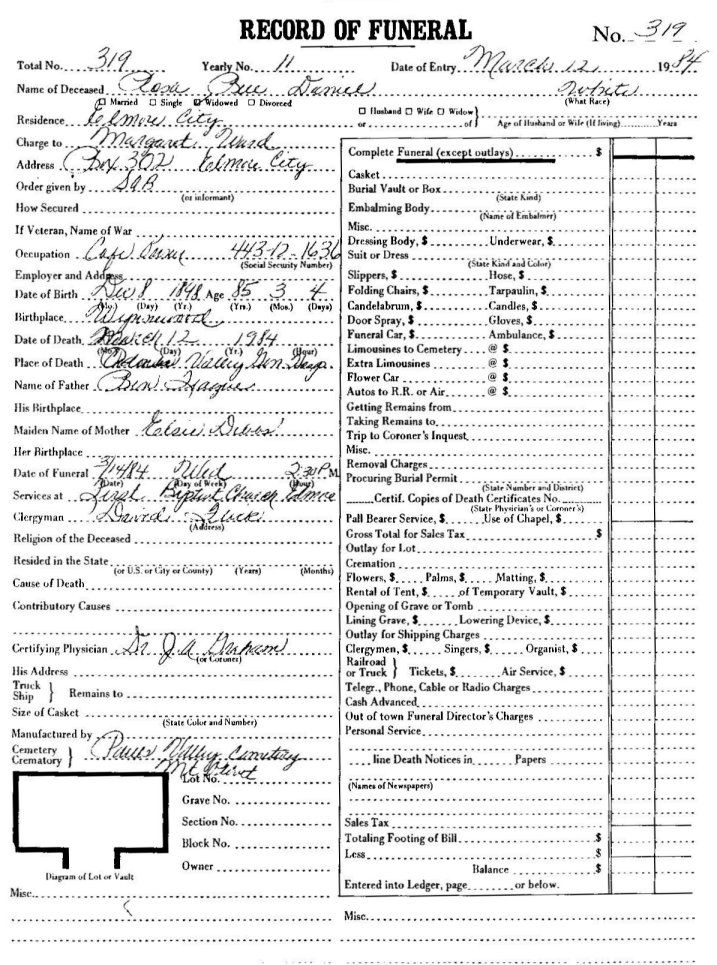 RECORD OF FUNERAL No. 319
Total No. 319 Yearly No. 11 Date of Entry March 12 1984
Name of Deceased Rosa Bee Daniel White
(What Race)
☐ Married ☐ Single ☑ Widowed ☐ Divorced
Residence Elmore City
☐ Husband ☐ Wife ☐ Widow }
or of } Age of Husband or Wife (If living) Years
Charge to Margaret Ward
Address Box 302 Elmore City
Order given by
(or informant)
How Secured
If Veteran, Name of War
Occupation Cafe 443-12-1636
(Social Security Number)
Employer and Address
Date of Birth Dec 8 1898 Age 85 3 4
(Mo.) (Day) (Yr.) (Yrs.) (Mos.) (Days)
Birthplace Wynnewood
Date of Death March 12 1984
(Mo.) (Day) (Yr.) (Hour)
Place of Death Valley Gen Hosp.
Name of Father Ben
His Birthplace
Maiden Name of Mother Elsie
Her Birthplace
Date of Funeral 3/14/84 Wed 2:30 P M
(Date) (Day of Week) (Hour)
Services at First Baptist Church Elmore
Clergyman David
(Address)
Religion of the Deceased
Resided in the State
(or U.S. or City or County) (Years) (Months)
Cause of Death
Contributory Causes
Certifying Physician Dr. J.A. Graham
(or Coroner)
His Address
Truck
Ship } Remains to
Size of Casket
(State Color and Number)
Manufactured by
Cemetery
Crematory } Pauls Valley Cemetery
Mt Olivet
Lot No.
Grave No.
Section No.
Block No.
Owner
Diagram of Lot or Vault
Misc.
Complete Funeral (except outlays) $
Casket
Burial Vault or Box
(State Kind)
Embalming Body
(Name of Embalmer)
Misc.
Dressing Body, $ Underwear, $
Suit or Dress
(State Kind and Color)
Slippers, $ Hose, $
Folding Chairs, $ Tarpaulin, $
Candelabrum, $ Candles, $
Door Spray, $ Gloves, $
Funeral Car, $ Ambulance, $
Limousines to Cemetery @ $
Extra Limousines @ $
Flower Car @ $
Autos to R.R. or Air @ $
Getting Remains from
Taking Remains to
Trip to Coroner's Inquest
Misc.
Removal Charges
Procuring Burial Permit
(State Number and District)
Certif. Copies of Death Certificates No.
(State Physician's or Coroner's)
Pall Bearer Service, $ Use of Chapel, $
Gross Total for Sales Tax $
Outlay for Lot
Cremation
Flowers, $ Palms, $ Matting, $
Rental of Tent, $ of Temporary Vault, $
Opening of Grave or Tomb
Lining Grave, $ Lowering Device, $
Outlay for Shipping Charges
Clergymen, $ Singers, $ Organist, $
Railroad
or Truck } Tickets, $ Air Service, $
Telegr., Phone, Cable or Radio Charges
Cash Advanced
Out of town Funeral Director's Charges
Personal Service
line Death Notices in Papers
(Names of Newspapers)
Sales Tax
Totaling Footing of Bill $
Less $
Balance $
Entered into Ledger, page or below.
Misc.